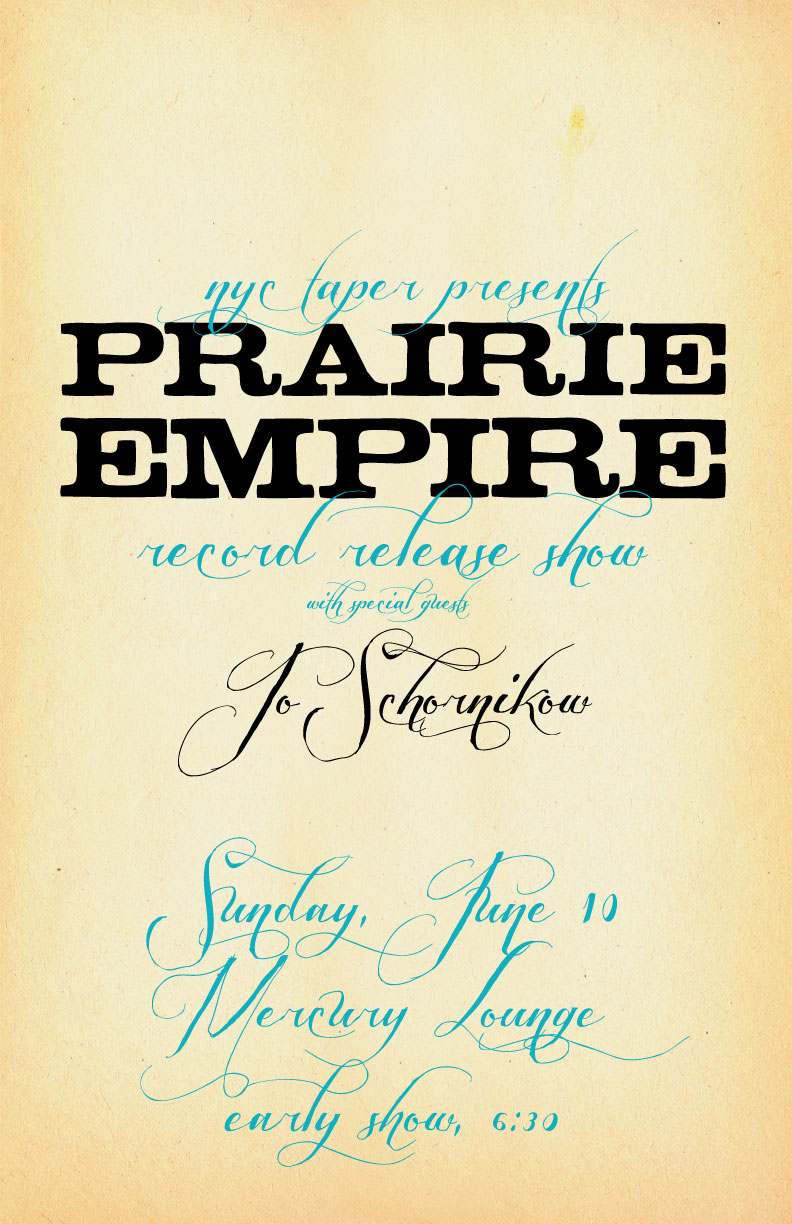 nyc taper presents
PRAIRIE
EMPIRE
record release show
with special guests
Jo Schornikow
Sunday, June 10
Mercury Lounge
early show, 6:30